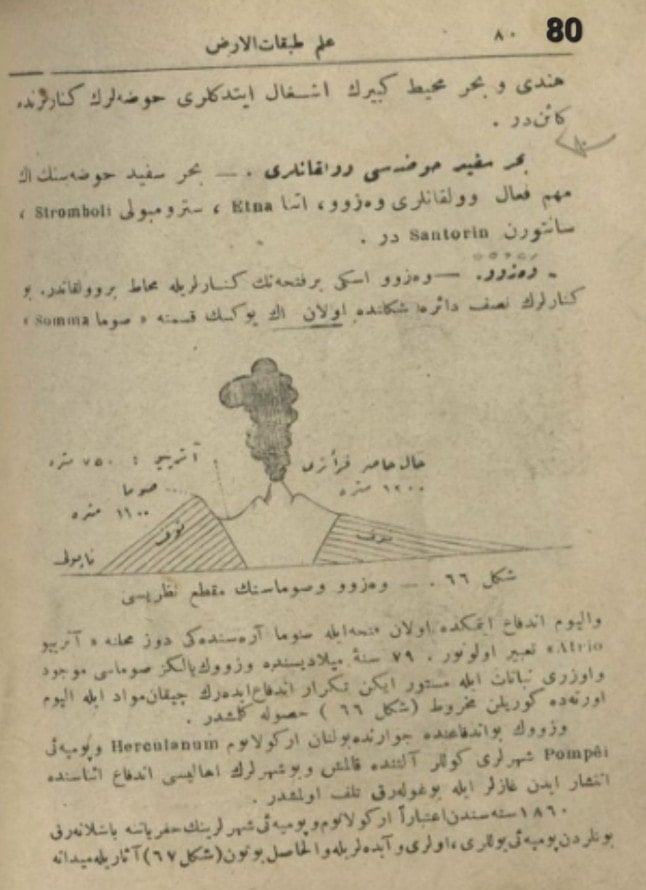 علم طبقات‌الارض ٨٠ 80
هندی و بحر محیط کبیرك اشغال ایتدکلری حوضه‌لرك کنارلرنده
کائن‌در .
بحر سفید حوضه‌سی وولقانلری . — بحر سفید حوضه‌سنك اك
مهم فعال وولقانلری وه‌زوو، اتنا Etna ، سترومبولی Stromboli ،
سانتورن Santorin در .
وه‌زوو. — وه‌زوو اسکی برفتحه‌نك کنارلریله محاط بروولقاندر. بو
کنارلرك نصف دائره شکلنده اولان اك یوکسك قسمنه « صوما Somma »
آتریو : ٧٥٠ متره
حال حاضر
١٢٠٠ متره
صوما
١١٠٠ متره
توف
توف
ناپولی
شکل ٦٦ . — وه‌زوو وصوماسنك مقطع نظریسی
والیوم اندفاع ایتمکده اولان فتحه‌ایله صوما آره‌سنده‌کی دوز محله « آتریو
Atrio» تعبیر اولونور . ٧٩ سنهٔ میلادیسنده وزووك یالکز صوماسی موجود
واوزری نباتات ایله مستور ایکن تکرار اندفاع ایده‌رك چیقان مواد ایله الیوم
اورته‌ده کوریلن مخروط (شکل ٦٦ ) حصوله کلمشدر .
وزووك بواندفاعنده جوارنده‌بولنان ارکولانوم Herculanum و پومپه‌ئی
Pompéi شهرلری کوللر آلتنده قالمش و بوشهرلرك اهالیسی اندفاع اثناسنده
انتشار ایدن غازلر ایله بوغوله‌رق تلف اولمشدر .
١٨٦٠ سنه‌سندن اعتباراً ارکولانوم و پومپه‌ئی شهرلرینك حفریاتنه باشلانه‌رق
بونلردن پومپه‌ئی یوللری، اولری و آبده‌لریله والحاصل بوتون (شکل ٦٧) آثاریله میدانه